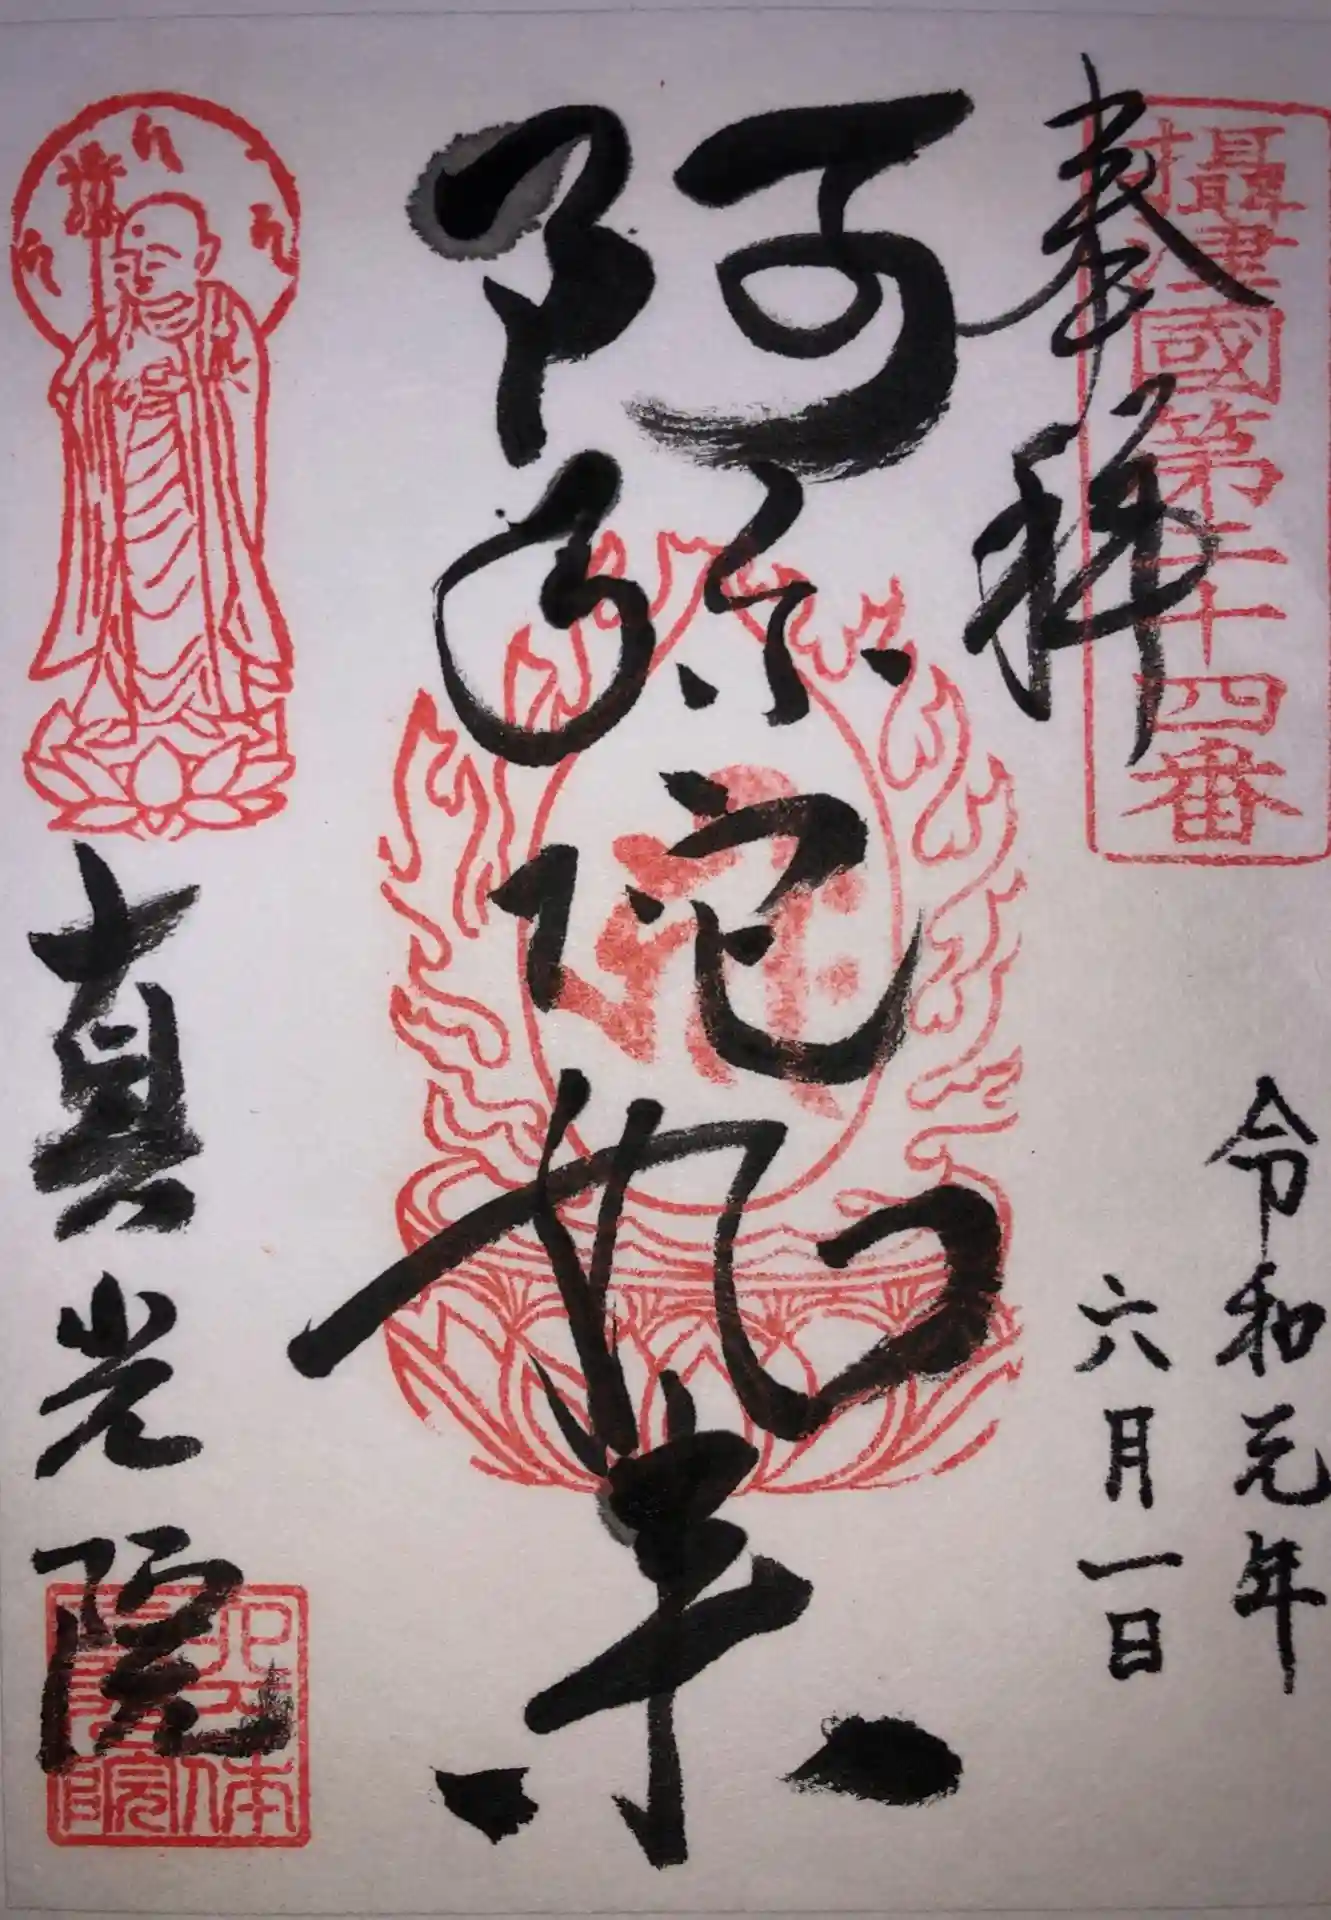 奉拝
攝津國第三十四番
令和元年
六月一日
阿弥陀如来
真光院